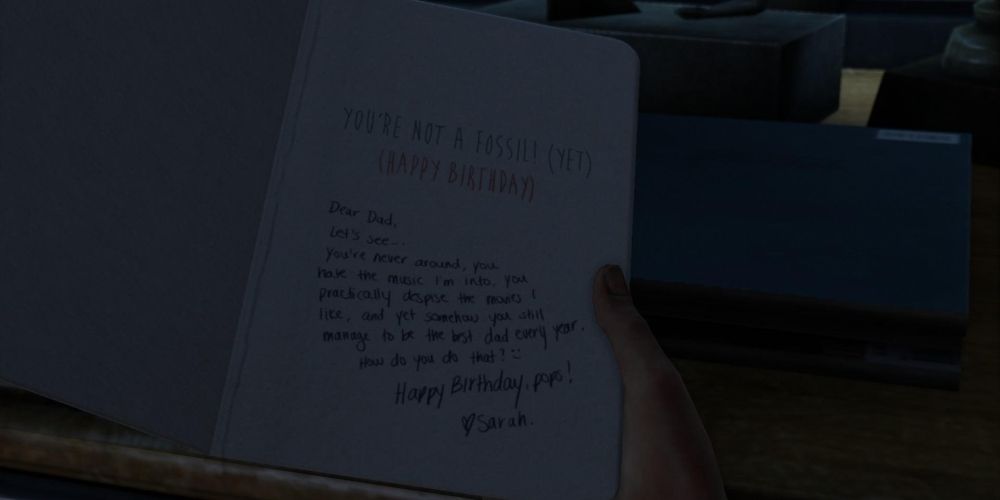 YOU'RE NOT A FOSSIL! (YET)
(HAPPY BIRTHDAY)
Dear Dad,
Let's see...
You're never around, you
hate the music I'm into, you
practically despise the movies I
like, and yet somehow you still
manage to be the best dad every year.
How do you do that? :)
Happy Birthday, pops!
♡ Sarah.